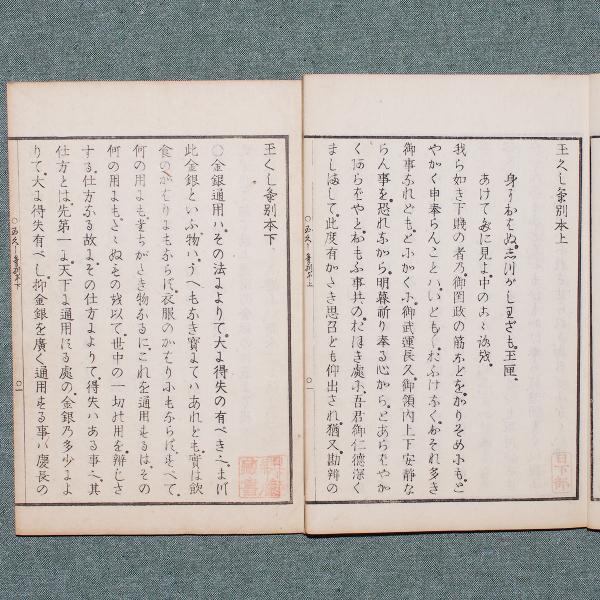 玉くしげ別本上
身におはぬ。しづがしわざも。玉匣。
あけてだに見よ。中のこゝろを。
我ら如き下賤の者の。御国政の筋などを。かりそめにも。と
やかく申奉らんことハ。いとも〱。おふけなく。おそれ多き
御事なれども。とにかくに。御武運長久。御領内上下安静な
らん事を恐れながら。明暮祈り奉る心から。とあらばや。かか
くあらばやと。おもふ事共の。おほき處に。吾君御仁徳深く
ましまして。此度有がたき思召ども仰出され。猶又勘辨の
玉くしげ別本下
○金銀通用ハ。その法によりて。大に得失の有べき事に。まづ
此金銀といふ物ハ。うへもなき寶にてハあれども。實は飲
食のかはりにもならず。衣服のかはりにもならず。すべて
何の用にも立ちがたき物なるに。これを通用するは。その
何の用にもたゝぬものを以て。世中の一切の用を辨じさ
する。仕方なる故に。その仕方によりて。得失ハある事に。其
仕方とは。先第一に。天下に通用する處の。金銀の多少によ
りて。大に得失有べし。抑金銀を廣く通用する事ハ慶長の